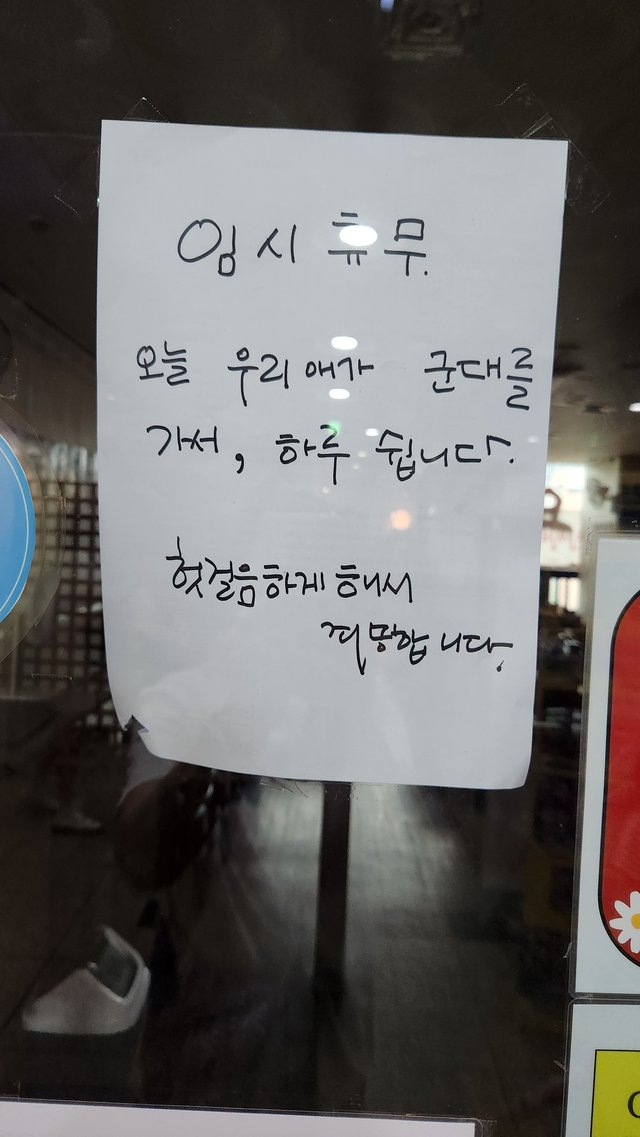 임시 휴무.
오늘 우리 애가 군대를
가서, 하루 쉽니다.
헛걸음하게 해서
죄송합니다.